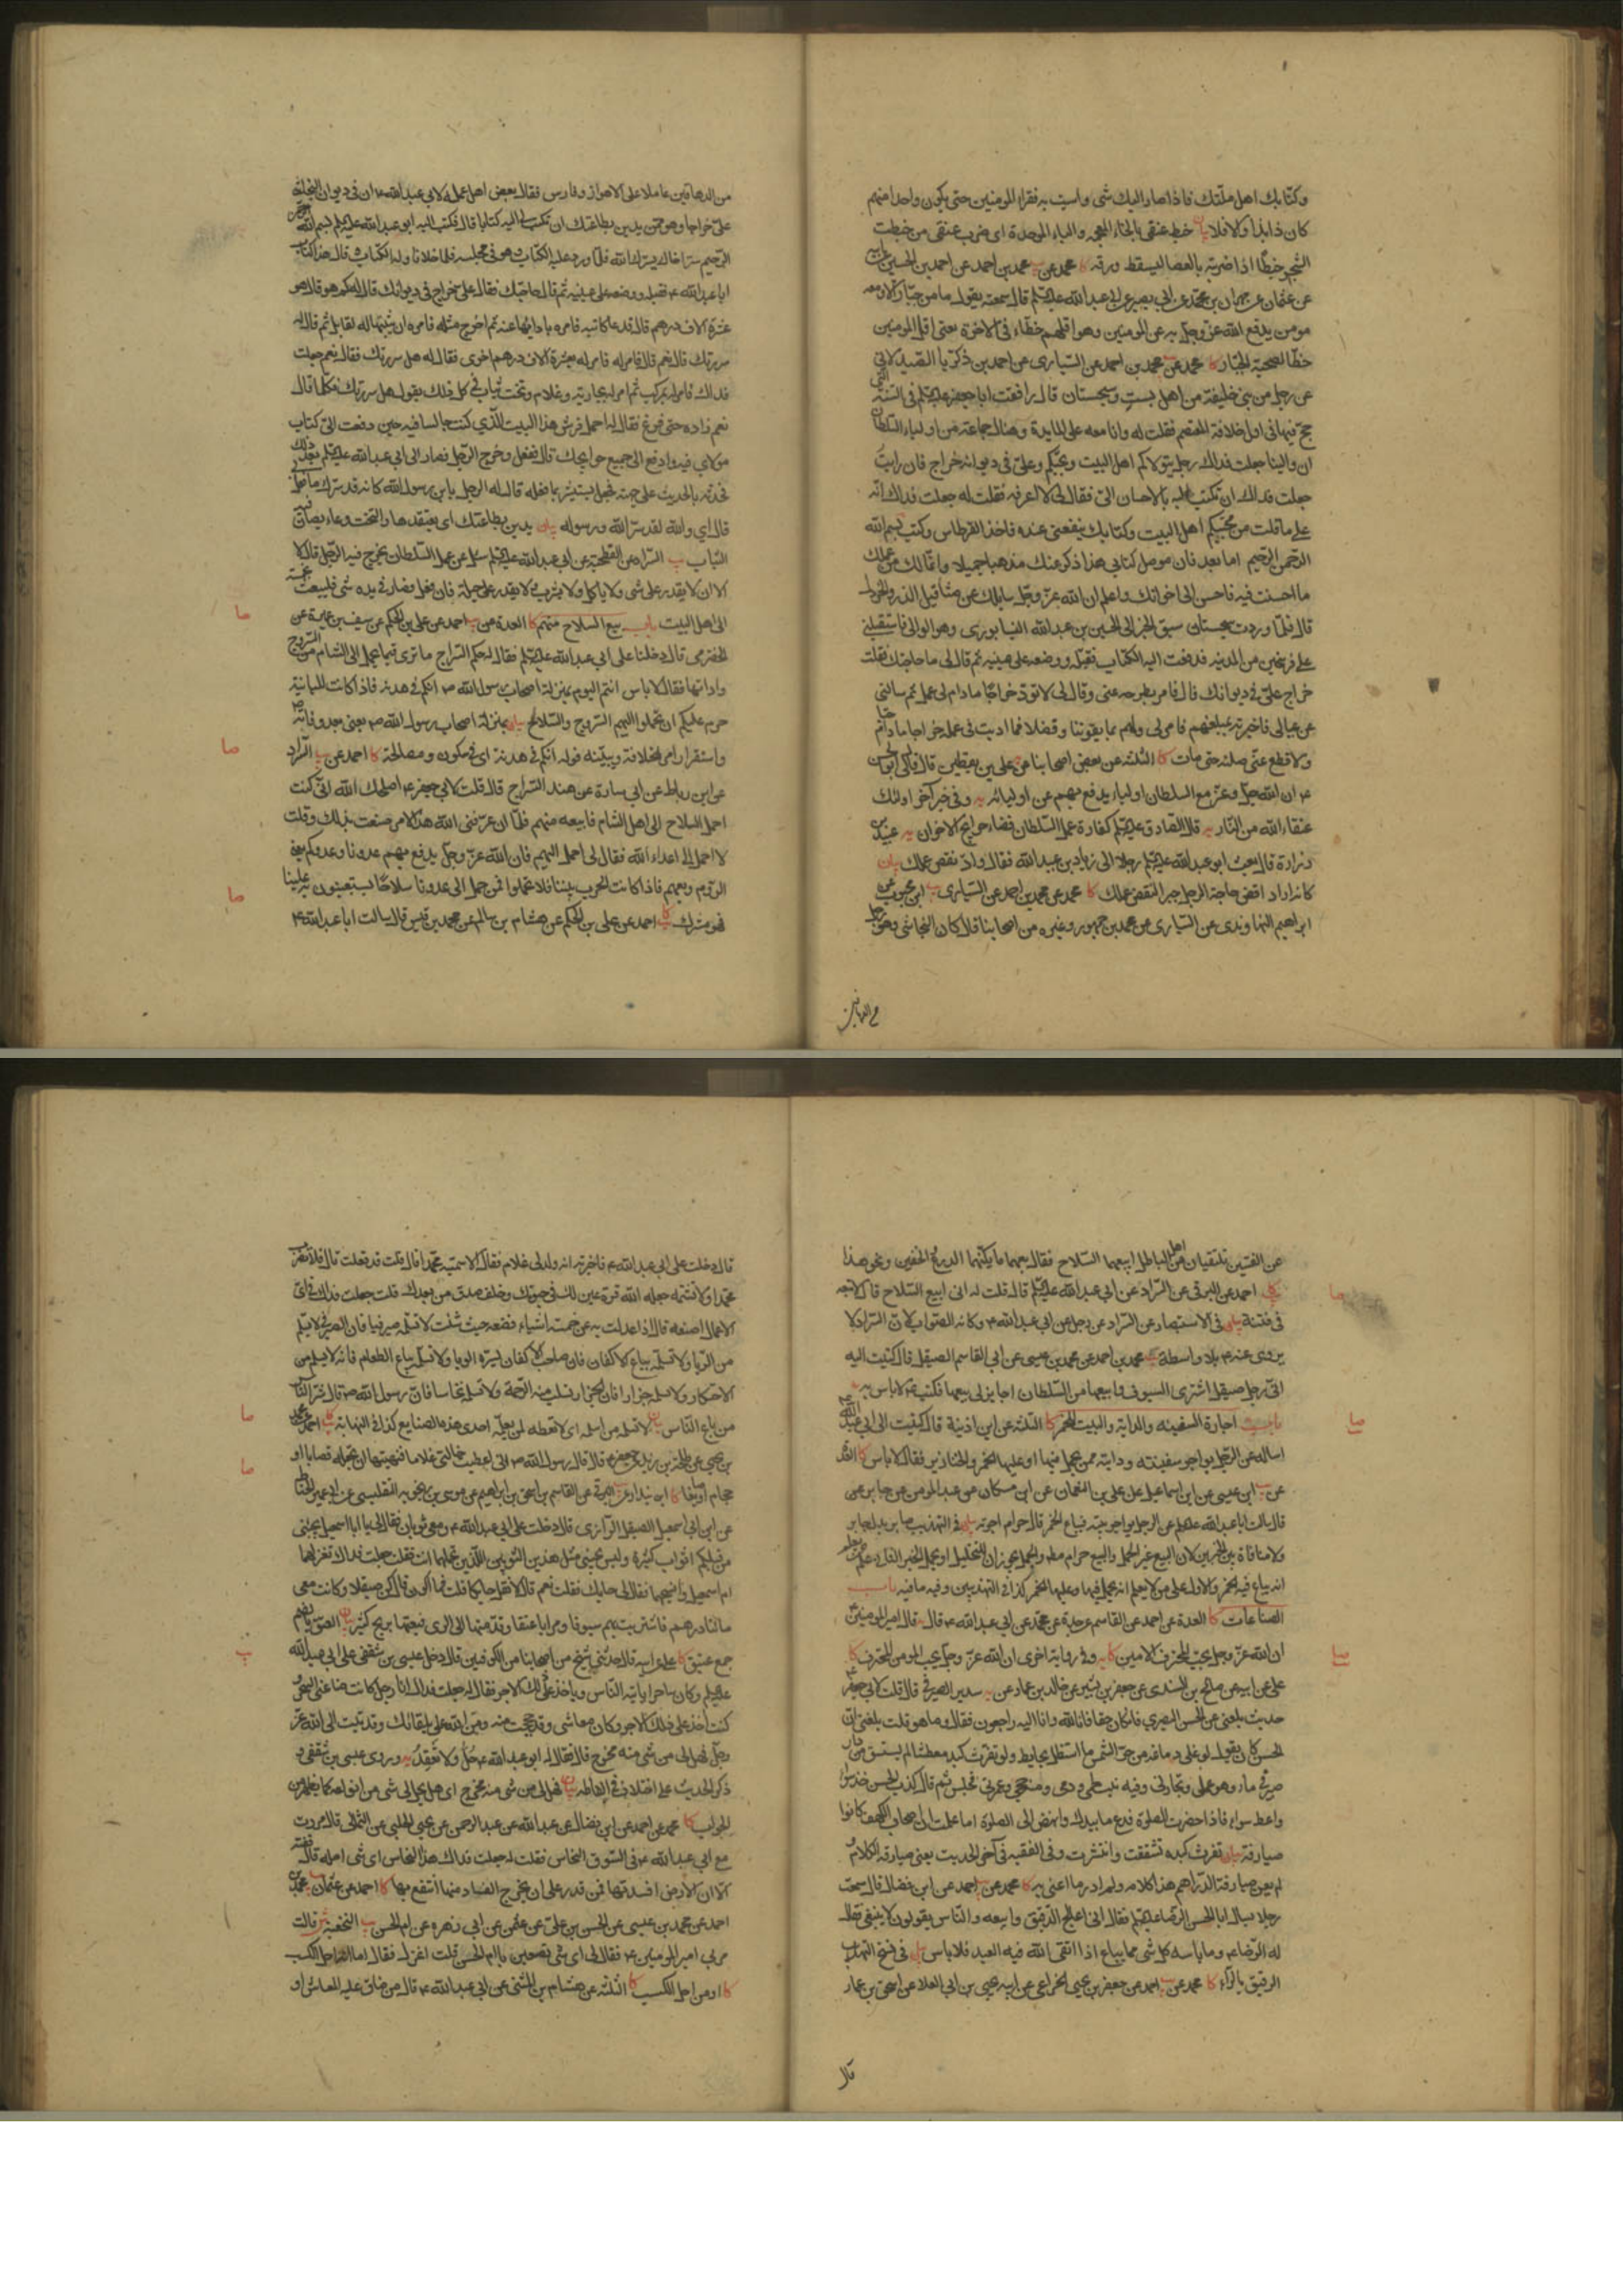 وكتابك اهل ملتك فاذا صار اليك شى واسيت به فقراء المومنين حتى يكون واحدا منهم
كان ذا بذا والا فلا بيان خبط عنقى بالخاء المعجمه والباء الموحدة اى ضرب عنقى من خبطت
الشجر خبطًا اذا ضربته بالعصا ليسقط ورقه كا محمد عن يب محمد بن احمد عن احمد بن الحسين عن ابيه
عن عثمان عن مهران بن محمد عن ابى بصير عن ابى عبد الله عليه السلم قال سمعته يقول ما من جبّار الا ومعه
مومن يدفع الله عزّ وجلّ به عن المومنين وهو اقلهم حظّاء فى الاخرة يعنى اقل المومنين
حظّا لصحبة الجبّار كا محمد عن يب محمد بن احمد عن السّيارى عن احمد بن زكريا الصّيدلانى
عن رجل من بنى حنيفة من اهل بست وسجستان قال رافقت ابا جعفر عليه السلم فى السّنة التى
حجّ فيها فى اول خلافة المعتصم فقلت له وانا معه على المايدة وهناك جماعة من اولياء السّلطان
ان والينا جعلت فداك رجل يتولاكم اهل البيت ويحبّكم وعلىّ فى ديوانه خراج فان رايت
جعلت فداك ان تكتب اليه بالاحسان الىّ فقال لى لا اعرفه فقلت له جعلت فداك انّه
على ما قلت من محبّيكم اهل البيت وكتابك ينفعنى عنده فاخذ القرطاس وكتب بسم الله
الرّحمن الرّحيم اما بعد فان موصل كتابى هذا ذكر عنك مذهبا جميلا وانّما لك من عملك
ما احسنت فيه فاحسن الى اخوانك واعلم ان الله عزّ وجلّ سايلك عن مثاقيل الذر والخردل
قال فلمّا وردت سجستان سبق الخبر الى الحسين بن عبد الله النيسابورى وهو الوالى فاستقبلنى
على فرسخين من المدينه فدفعت اليه الكتاب فقبّله ووضعه على عينيه ثم قال لى ما حاجتك فقلت
خراج علىّ فى ديوانك قال فامر بطرحه عنى وقال لى لا تودّ خراجًا ما دام لى عمل ثم سالنى
عن عيالى فاخبرته بمبلغهم فامر لى ولهم بما يقوتنا وفضلا فما اديت فى عمله خراجا ما دام حيّا
ولا قطع عنّى صلته حتى مات كا الثلثه عن بعض اصحابنا عن على بن يقطين قال قال لى ابو الحسن
ع ان الله جلّ وعزّ مع السلطان اولياء يدفع بهم عن اوليائه يه وفى خبر آخر اولئك
عتقاء الله من النّار يه قال الصّادق عليه السلم كفّارة عمل السّلطان قضاء حوايج الاخوان يه عبيد بن
زرارة قال بعث ابو عبد الله عليه السلم رجلا الى زياد بن عبيد الله فقال وادّ نقص عملك بيان
كانه اراد اقض حاجة الرجل جبرا لنقص عملك كا محمد عن محمد بن احمد عن السّيارى يب ابن محبوب عن
ابراهيم النهاوندى عن السّيارى عن محمد بن جمهور وغيره من اصحابنا قال كان النجاشى وهو رجل
من الدهاقين
من الدهاقين عاملا على الاهواز وفارس فقال بعض اهل عمله لابى عبد الله ع ان فى ديوان النجاشى
علىّ خراجا وهو ممن يدين بطاعتك ان تكتب لى اليه كتابا قال فكتب اليه ابو عبد الله عليه السلم بسم الله الرحمن
الرّحيم سرّ اخاك يسرّك الله فلمّا ورد عليه الكتاب وهو فى مجلسه فلما خلا ناوله الكتاب وقال هذا كتاب
ابا عبد الله ع فقبله ووضعه على عينيه ثم قال ما حاجتك فقال علىّ خراج فى ديوانك قال له كم هو قال هو
عشرة الاف درهم قال فدعا كاتبه فامره بادائها عنه ثم اخرج مثله فامره ان يثبتها له لقابل ثم قال له
سررتك قال نعم قال فامر له بعشرة الاف درهم اخرى فقال له هل سررتك فقال نعم جعلت
فداك فامر له بمركب ثم امر له بجارية وغلام وتخت ثياب فى كل ذلك يقول هل سررتك فكلما قال
نعم زاده حتى فرغ فقال له احمل فرش هذا البيت الّذى كنت جالسا فيه حين دفعت الىّ كتاب
مولاى فيه وادفع الىّ جميع حوايجك قال ففعل وخرج الرّجل فصار الى ابى عبد الله عليه السلم بعد ذلك
فحدّثه بالحديث على جهته فجعل يستبشر بما فعله قال له الرجل يا بن رسول الله كانه قد سرّك ما فعل بى
قال اى والله لقد سرّ الله ورسوله بيان يدين بطاعتك اى يعتقدها والتخت وعاء يصان فيه
الثياب يب السّراد عن الفطحية عن ابى عبد الله عليه السلم سئل عن عمل السّلطان يخرج فيه الرّجل قال لا
الا ان لا يقدر على شى ولا ياكل ولا يشرب ولا يقدر على حيلة فان فعل فصار فى يده شى فليبعث بخمسه
الى اهل البيت باب بيع السلاح منهم كا العدة عن يب احمد عن على بن الحكم عن سيف بن عميرة عن
الحضرمى قال دخلنا على ابى عبد الله عليه السلم فقال له حكم السّراج ما ترى فيما يحمل الى الشام من السّروج
واداتها فقال لا باس انتم اليوم بمنزلة اصحاب رسول الله ص انكم فى هدنة فاذا كانت المباينة
حرم عليكم ان تحملوا اليهم السّروج والسّلاح بيان بمنزلة اصحاب رسول الله ص يعنى بعد وفاته ص
واستقرار امر الخلافة وبيّنه قوله انكم فى هدنة اى فى سكون ومصالحة كا احمد عن يب السّراد
عن ابن رباط عن ابى سارة عن هند السّراج قال قلت لابى جعفر ع اصلحك الله انّى كنت
احمل السلاح الى اهل الشام فابيعه منهم فلمّا ان عرّفنى الله هذا الامر ضقت بذلك وقلت
لا احمل الى اعداء الله فقال لى احمل اليهم فان الله عزّ وجلّ يدفع بهم عدونا وعدوكم يعنى
الرّوم وبعهم فاذا كانت الحرب بيننا فلا تحملوا فمن حمل الى عدونا سلاحًا يستعينون به علينا
فهو مشرك كا يب احمد عن على بن الحكم عن هشام بن سالم عن محمد بن قيس قال سالت ابا عبد الله ع
عن الفئتين تلتقيان من اهل الباطل ابيعهما السّلاح فقال بعهما ما يكنّهما الدرع والخفين ونحو هذا
كا يب احمد عن البرقى عن السّراد عن ابى عبد الله عليه السلم قال قلت له انى ابيع السّلاح قال لا تبعه
فى فتنة بيان فى الاستبصار عن السّراد عن رجل عن ابى عبد الله ع وكانه الصّواب لانّ السّراد لا
يروى عنه ع بلا واسطة يب محمد بن احمد عن محمد بن عيسى عن ابى القاسم الصيقل قال كتبت اليه
انّى رجل صيقل اشترى السيوف وابيعها من السّلطان اجايز لى بيعها فكتب ع لا باس به
باب اجارة السفينه والدابة والبيت للخمر كا الثلثه عن ابن اذينة قال كتبت الى ابى عبد الله ع
اساله عن الرّجل يواجر سفينته ودابته ممن يحمل فيها او عليها الخمر والخنازير فقال لا باس كا العدّة
عن يب ابن عيسى عن ابن اسماعيل عن على بن النعمان عن ابن مسكان عن عبد المومن عن جابر عن
قال سالت ابا عبد الله عليه السلم عن الرجل يواجر بيته فيباع الخمر قال حرام اجرته بيان فى التهذيب صابر بدل جابر
ولا منافاة بين الخبرين لان البيع غير الحمل والبيع حرام مطلقا والحمل يجوز ان للتخليل او يحمل الخبر الثانى على من علم
انه يباع فيه الخمر والاول على من لا يعلم انه يحمل فيها وعليها الخمر كذا فى التهذيبين وفيه ما فيه باب
الصناعات كا العدة عن احمد عن القاسم عن جده عن محمد عن ابى عبد الله ع قال يه قال امير المومنين
ان الله عزّ وجلّ يحب المحترف الامين كا يه وفى رواية اخرى ان الله عزّ وجلّ يحب المومن المحترف كا
على عن ابيه عن صالح بن السندى عن جعفر بن بشير عن خالد بن عماد عن يه سدير الصيرفى قال قلت لابى جعفر ع
حديث بلغنى عن الحسن البصرى فان كان حقا فانا لله وانا اليه راجعون فقال وما هو قلت بلغنى انّ
الحسن كان يقول لو غلى دماغه من حرّ الشّمس ما استظل بحايط ولو تفرّث كبده عطشا لم يستسق من دار
صيرفى ماء وهو عملى وتجارتى وفيه نبت لحمى ودمى ومنه حجى وعمرتى فجلس ثم قال كذب الحسن خذ سواء
واعط سواء فاذا حضرت الصلوة فدع ما بيدك وانهض الى الصلوة اما علمت ان اصحاب الكهف كانوا
صيارفة بيان تفرث كبده تشققت وانتثرت وفى الفقيه فى آخر الحديث يعنى صيارفه الكلام و
لم يعن صيارفة الدّراهم هذا كلامه ولم ادر ما اعنى به كا محمد عن يب احمد عن ابن فضال قال سمعت
رجلا يسال ابا الحسن الرّضا عليه السلم فقال انى اعالج الدّقيق وابيعه والنّاس يقولون لا ينبغى فقال
له الرّضا ع وما باسه كل شى مما يباع اذا اتقى الله فيه العبد فلا باس بيان فى نسخ التهذيب
الرقيق بالرّاء كا محمد عن يب احمد عن جعفر بن يحيى الخزاعى عن ابيه يحيى بن ابى العلا عن اسحق بن عمار
قال
قال دخلت على ابى عبد الله ع فاخبرته انه ولد لى غلام فقال الا سمّيته محمّدا قال قلت قد فعلت قال فلا تضرب
محمّدا ولا تشتمه جعله الله قرة عين لك فى حيوتك وخلف صدق من بعدك قلت جعلت فداك فى اىّ
الاعمال اضعه قال اذا عدلت به عن خمسة اشياء فضعه حيث شئت لا تسلمه صيرفيا فان الصيرفى لا يسلم
من الرّبا ولا تسلمه بياع الاكفان فان صاحب الاكفان يسرّه الوبا ولا تسلمه بياع الطعام فانه لا يسلم من
الاحتكار ولا تسلمه جزارا فان الجزار تسلب منه الرّحمة ولا تسلمه نخاسا فان رسول الله ص قال شرّ النّاس
من باع النّاس بيان لا تسلمه من اسلمه اى لا تعطه لمن يعلّمه احدى هذه الصنايع كذا فى النهاية كا يب احمد عن محمد
بن يحيى عن طلحة بن زيد عن جعفر ع قال قال رسول الله ص انى اعطيت خالتى غلاما فنهيتها ان تجعله قصابا او
حجاما او صايغا كا ابن بندار عن يب البرقى عن القاسم بن اسحق بن ابراهيم عن موسى بن زنجويه التفليسى عن ابى عمر الحنّاط
عن ابن ابى اسمعيل الصيقل الرّازى قال دخلت على ابى عبد الله ع ومعى ثوبان فقال لى يا ابا اسمعيل يجيئنى
من قبلكم اثواب كثيرة وليس يجيئنى مثل هذين الثوبين اللّذين تحملهما انت فقلت جعلت فداك تغزلهما
ام اسمعيل وانسجهما فقال لى حايك فقلت نعم قال لا تكن حايكا قلت فما اكون قال كن صيقلا وكانت معى
مائتا درهم فاشتريت بهم سيوفا ومرايا عتقا وقدمت بها الى الرى فبعتها بربح كثير بيان العتق بالضم
جمع عتيق كا على عن ابيه قال حدثنى شيخ من اصحابنا من الكوفيين قال دخل عيسى بن شقفى على ابى عبد الله
عليه السلم وكان ساحرا ياتيه النّاس وياخذ على ذلك الاجر فقال له جعلت فداك انا رجل كانت صناعتى السّحر و
كنت اخذ على ذلك الاجر وكان معاشى وقد حججت منه ومنّ الله علىّ بلقائك وقد تبت الى الله عزّ
وجلّ فهل لى من شى منه مخرج قال فقال له ابو عبد الله ع حُلّ ولا تعقد يه وروى عيسى بن شقفى و
ذكر الحديث على اختلاف فى الفاظه بيان فهل لى من شى منه مخرج اى هل يحل لى شى من انواعه كما يظهر من
الجواب كا محمد عن احمد عن ابن فضال عن عبد الله عن عبد الرحمن عن يحيى الحلبى عن الثمالى قال مررت
مع ابى عبد الله ع فى السّوق النحاس فقلت له جعلت فداك هذا النحاس اى شى اصله قال فضّة
الّا ان الارض افسدتها فمن قدر على ان يخرج الفساد منها انتفع بها كا احمد عن عثمان يب محمد بن
احمد عن محمد بن عيسى عن الحسن بن على عن عثمن عن ابى زهره عن ام الحسن يب النخعية ش قالت
مر بى امير المومنين ع فقال لى اى شى تصنعين يا ام الحسن قلت اغزل فقال اما انه احل الكسب
كا او من احل الكسب كا الثلثه عن هشام بن المثنى عن ابى عبد الله ع قال من ضاق عليه المعاش او